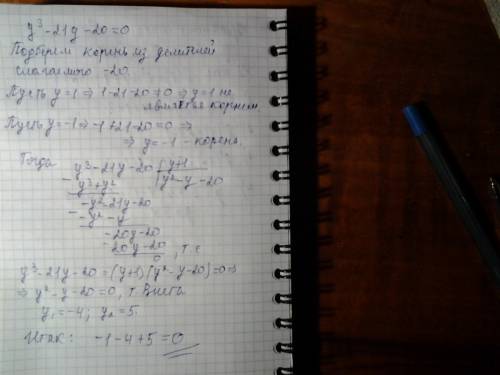 y³ - 21y - 20 = 0
Подберем корень из делителей
слагаемого -20.
Пусть y = 1 ⇒ 1 - 21 - 20 ≠ 0 ⇒ y = 1 не
является корнем.
Пусть y = -1 ⇒ -1 + 21 - 20 = 0 ⇒
⇒ y = -1 - корень.
Тогда y³ - 21y - 20 | y + 1
- y³ + y² | y² - y - 20
- -y² - 21y - 20
-y² - y
- -20y - 20
-20y - 20
0, т.е.
y³ - 21y - 20 = (y + 1)(y² - y - 20) = 0 ⇒
⇒ y² - y - 20 = 0, т. Виета
y₁ = -4; y₂ = 5.
Итак: -1 - 4 + 5 = 0